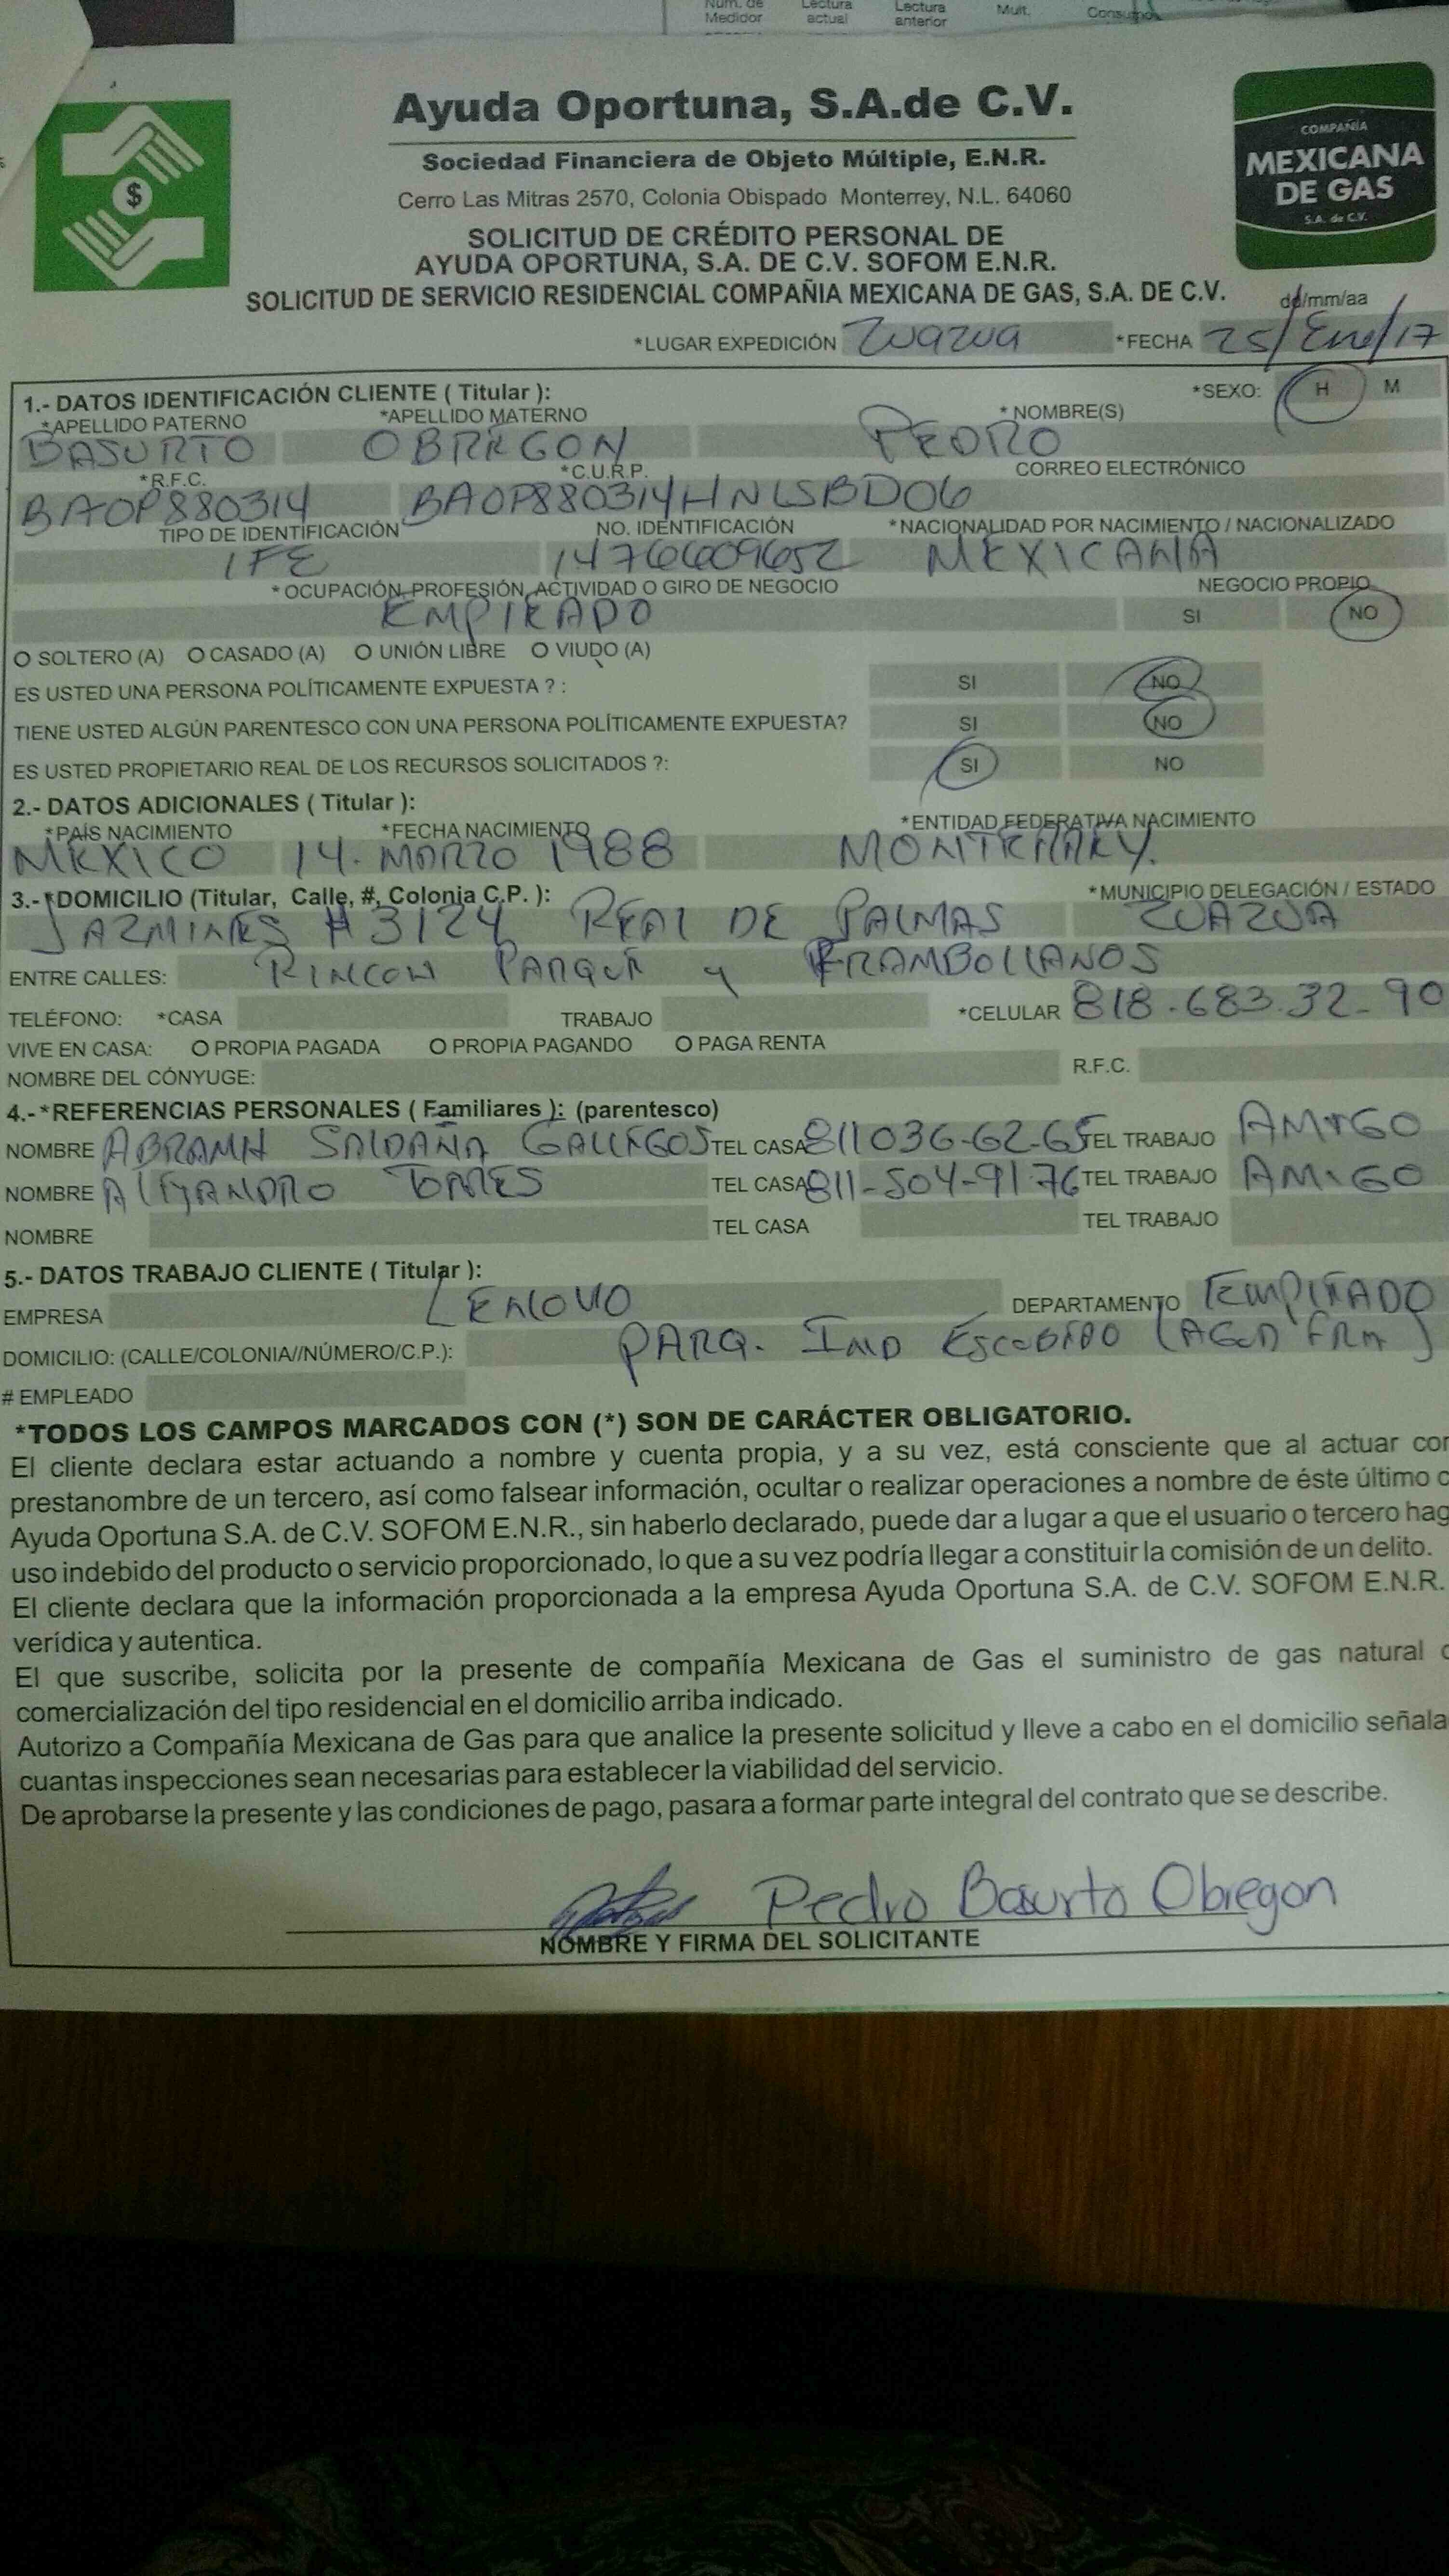 Núm. de Medidor Lectura actual Lectura anterior Mult. Consumo
Ayuda Oportuna, S.A.de C.V.
Sociedad Financiera de Objeto Múltiple, E.N.R.
Cerro Las Mitras 2570, Colonia Obispado Monterrey, N.L. 64060
$
COMPAÑÍA
MEXICANA
DE GAS
S.A. de C.V.
SOLICITUD DE CRÉDITO PERSONAL DE
AYUDA OPORTUNA, S.A. DE C.V. SOFOM E.N.R.
SOLICITUD DE SERVICIO RESIDENCIAL COMPAÑIA MEXICANA DE GAS, S.A. DE C.V.
dd/mm/aa
*LUGAR EXPEDICIÓN Zuazua *FECHA 25/Ene/17
1.- DATOS IDENTIFICACIÓN CLIENTE ( Titular ): *SEXO: H M
*APELLIDO PATERNO *APELLIDO MATERNO * NOMBRE(S)
BASURTO OBREGON PEDRO
*R.F.C. *C.U.R.P. CORREO ELECTRÓNICO
BAOP880314 BAOP880314HNLSBD06
TIPO DE IDENTIFICACIÓN NO. IDENTIFICACIÓN *NACIONALIDAD POR NACIMIENTO / NACIONALIZADO
IFE 1476609652 MEXICANA
* OCUPACIÓN, PROFESIÓN, ACTIVIDAD O GIRO DE NEGOCIO NEGOCIO PROPIO
EMPLEADO SI NO
O SOLTERO (A) O CASADO (A) O UNIÓN LIBRE O VIUDO (A)
ES USTED UNA PERSONA POLÍTICAMENTE EXPUESTA ? : SI NO
TIENE USTED ALGÚN PARENTESCO CON UNA PERSONA POLÍTICAMENTE EXPUESTA? SI NO
ES USTED PROPIETARIO REAL DE LOS RECURSOS SOLICITADOS ?: SI NO
2.- DATOS ADICIONALES ( Titular ):
*PAÍS NACIMIENTO *FECHA NACIMIENTO *ENTIDAD FEDERATIVA NACIMIENTO
MEXICO 14. MARZO 1988 MONTERREY.
3.- *DOMICILIO (Titular, Calle, #, Colonia C.P. ): *MUNICIPIO DELEGACIÓN / ESTADO
JAZMINES #3124 REAL DE PALMAS ZUAZUA
ENTRE CALLES: RINCON PARQUE y FRAMBOLLANOS
TELÉFONO: *CASA TRABAJO *CELULAR 818.683.32-90
VIVE EN CASA: O PROPIA PAGADA O PROPIA PAGANDO O PAGA RENTA
NOMBRE DEL CÓNYUGE: R.F.C.
4.-*REFERENCIAS PERSONALES ( Familiares ): (parentesco)
NOMBRE ABRAMH SALDAÑA GALLEGOS TEL CASA 811036-62-65 TEL TRABAJO AMIGO
NOMBRE AlEJANDRO TORRES TEL CASA 811-504-91-76 TEL TRABAJO AMIGO
NOMBRE TEL CASA TEL TRABAJO
5.- DATOS TRABAJO CLIENTE ( Titular ):
EMPRESA LENOVO DEPARTAMENTO EMPLEADO
DOMICILIO: (CALLE/COLONIA//NÚMERO/C.P.): PARQ. IND ESCOBEDO
# EMPLEADO
*TODOS LOS CAMPOS MARCADOS CON (*) SON DE CARÁCTER OBLIGATORIO.
El cliente declara estar actuando a nombre y cuenta propia, y a su vez, está consciente que al actuar con
prestanombre de un tercero, así como falsear información, ocultar o realizar operaciones a nombre de éste último
Ayuda Oportuna S.A. de C.V. SOFOM E.N.R., sin haberlo declarado, puede dar a lugar a que el usuario o tercero hag
uso indebido del producto o servicio proporcionado, lo que a su vez podría llegar a constituir la comisión de un delito.
El cliente declara que la información proporcionada a la empresa Ayuda Oportuna S.A. de C.V. SOFOM E.N.R.
verídica y autentica.
El que suscribe, solicita por la presente de compañía Mexicana de Gas el suministro de gas natural
comercialización del tipo residencial en el domicilio arriba indicado.
Autorizo a Compañía Mexicana de Gas para que analice la presente solicitud y lleve a cabo en el domicilio señala
cuantas inspecciones sean necesarias para establecer la viabilidad del servicio.
De aprobarse la presente y las condiciones de pago, pasara a formar parte integral del contrato que se describe.
Pedro Basurto Obregon
NOMBRE Y FIRMA DEL SOLICITANTE